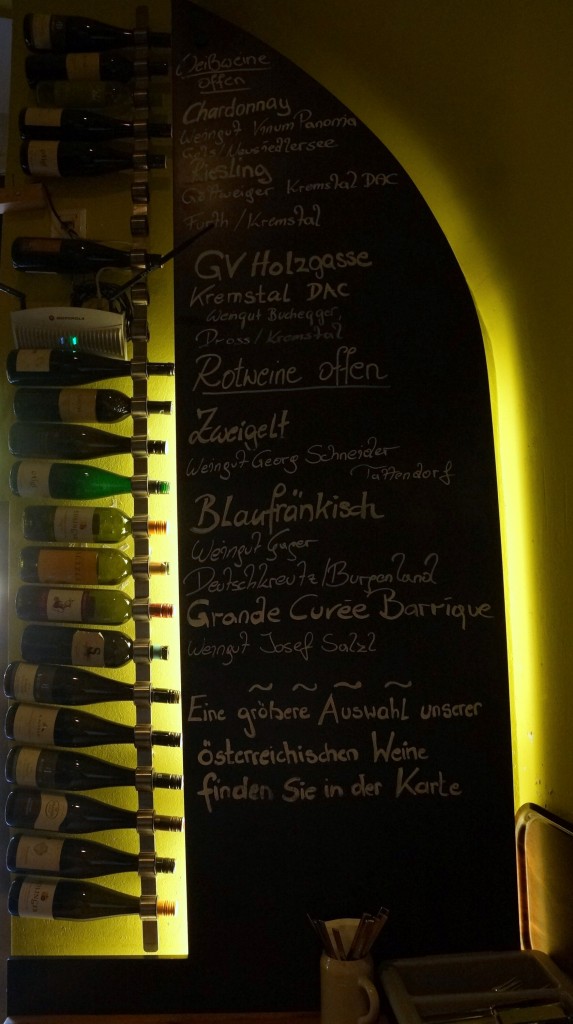 Weißweine
offen
Chardonnay
Weingut Vinum Panonia
Gols/Neusiedlersee
Riesling
Göttweiger Kremstal DAC
Furth/Kremstal
GV Holzgasse
Kremstal DAC
Weingut Buchegger,
Dross/Kremstal
Rotweine offen
Zweigelt
Weingut Georg Schneider
Tattendorf
Blaufränkisch
Weingut Gager
Deutschkreutz/Burgenland
Grande Cuvée Barrique
Weingut Josef Salzl
~ ~ ~ ~
Eine größere Auswahl unserer
österreichischen Weine
finden Sie in der Karte